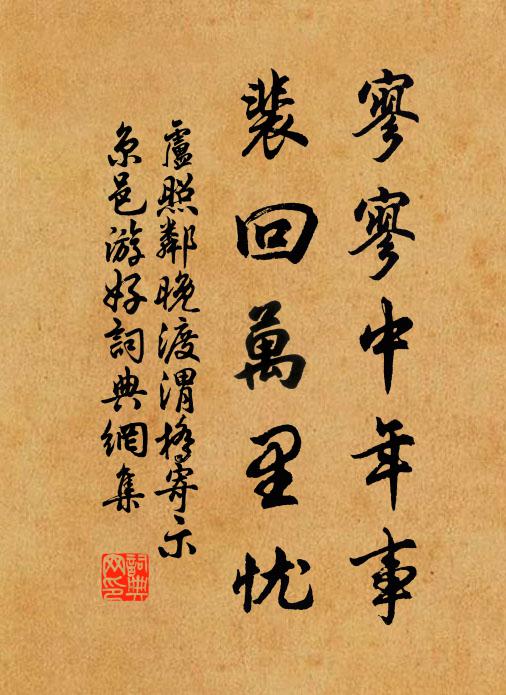 寥寥中年事
裴回萬里忧
盧照鄰晚渡渭橋寄示
京邑游好詞典網集
詞典
网印